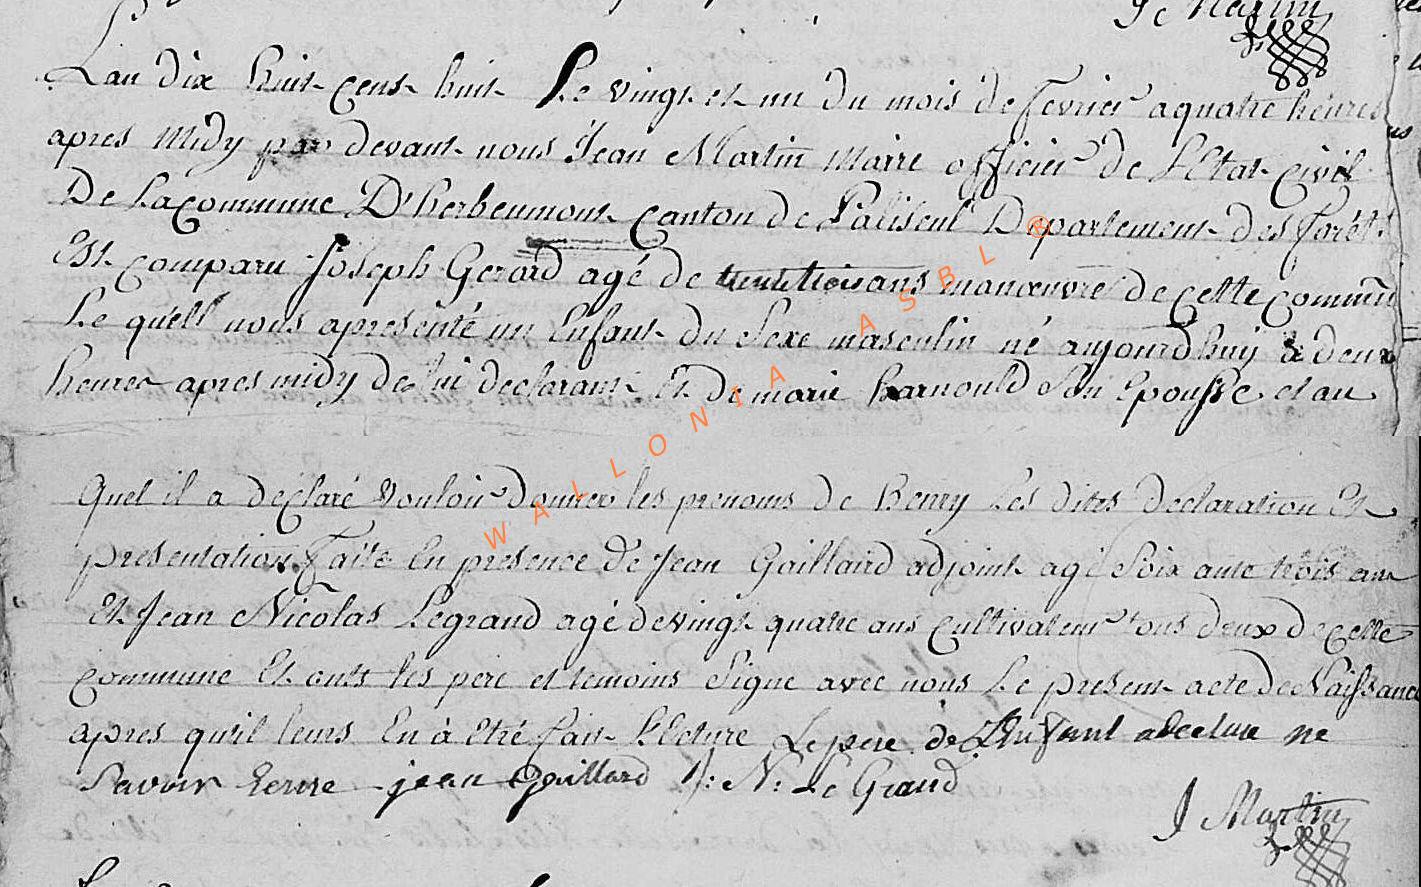 J Martin
Lan dix huit cens huit Le vingt et un du mois de fevrier a quatre heures
apres midy par devant nous Jean Martin Maire officier de L'Etat civil
De La commune D'herbeumont canton de Paliseul Departement des forêts
Est comparu Joseph Gerard agé de trente trois ans manœuvre de cette commun
Le quell nous apresenté un Enfant du Sexe masculin né aujourdhuy à deux
heures apres midy de lui declarant Et De marie harnould Son Epousse et au
Quel il a déclaré Vouloir donner les prenoms de Henry Les dites declaration Et
presentation faite En presence de Jean Gaillard adjoint agé Soix ante trois ans
Et Jean Nicolas Legrand agé de vingt quatre ans cultivateur tous deux de cette
commune Et onts les pere et temoins Signe avec nous Le present acte de Naissance
apres quil leurs En à Etté fait Lecture Le pere de L'Enfant a declare ne
Savoir Ecrire jean Gaillard J: N: Le Grand
J Martin
WALLONIA ASBL ®